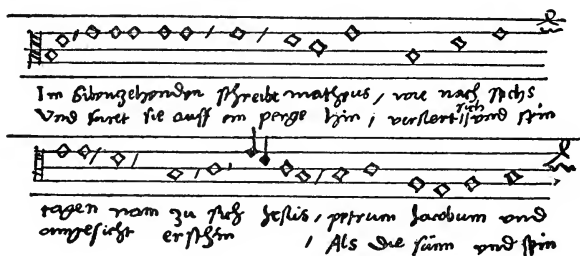 Im Sibenzehenden schreibt matheus, wie nach sechs
Vnd furet sie auff ein perge hin, verklert sich vnd sein
tagen nam zu sich Jesus, petrum Jacobum vnd
angesicht erschin, Als die sunn vnd sein